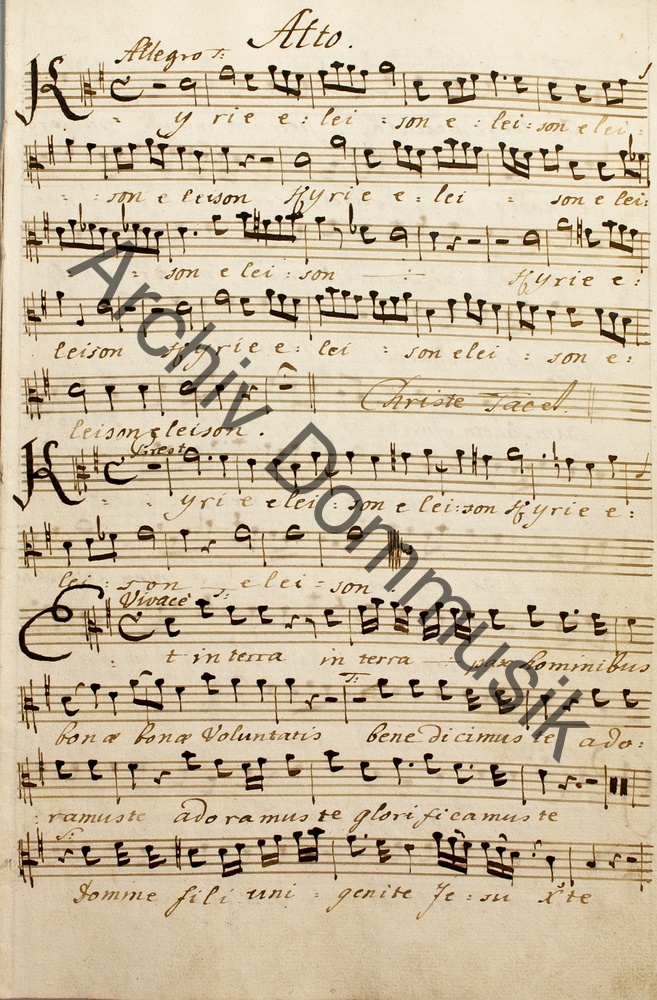 Alto.
Allegro
Kyrie e: lei : son e : lei : son e lei :
son e leison Kyrie e : lei : son e lei:
son e lei : son Kyrie e :
leison Kyrie e : lei : son e lei : son e :
Christe tacet.
leison e leison .
Presto
Kyrie e lei : son e lei : son Kyrie e :
lei : son e lei : son .
Vivace
Et in terra in terra pax hominibus
bonæ bonæ voluntatis bene dicimus te ado :
ramus te adoramus te glorificamus te
Domine fili uni : genite Je : su Xste
Archiv Dommusik